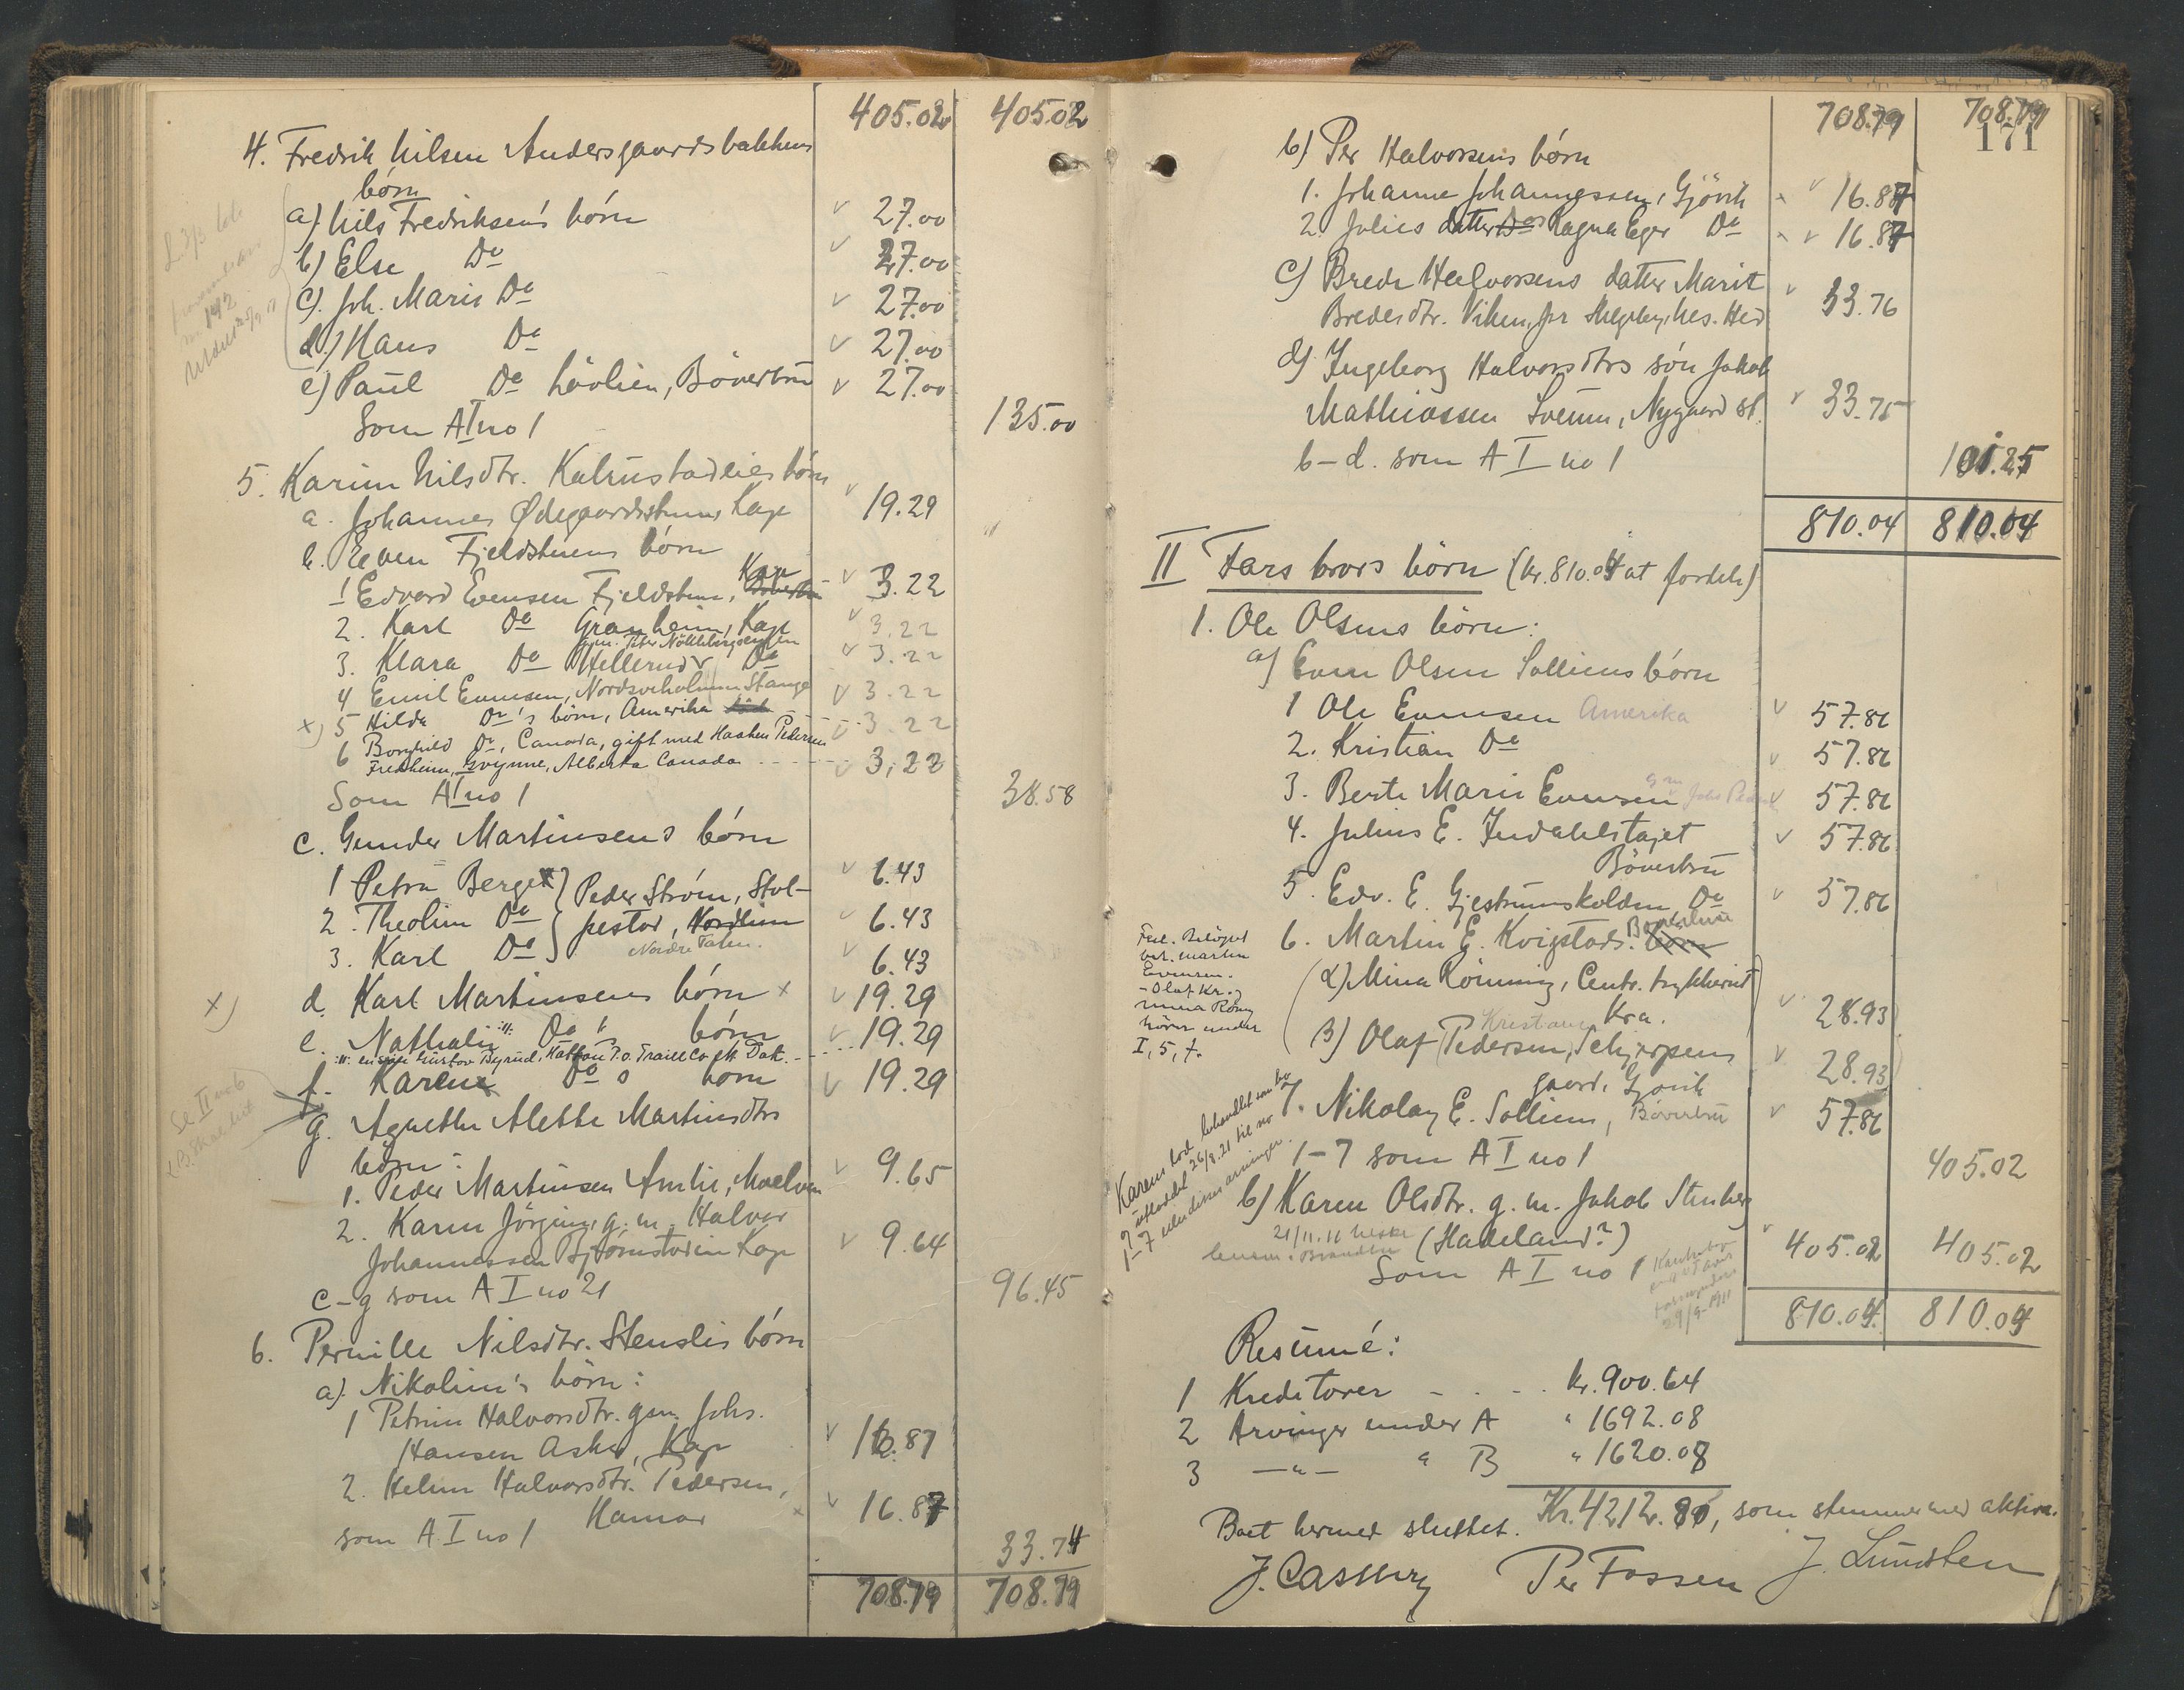 405.02 405.02
4. Fredrik Nilsen Andersgaardsbakkens
børn
a) Nils Fredriksen's børn 27.00
b) Else Do 27.00
c) Joh. Marie Do 27.00
d) Hans Do 27.00
e) Paul Do Løvlien, Bøverbru 27.00
Som A I no 1 135.00
5. Karine Nilsdtr. Kalrustadeies børn
a. Johannes Ødegaardsstuen, Kap 19.29
b. Even Fjeldstuens børn
1 Edvard Evensen Fjeldstuen, Kap 3.22
2. Karl Do Granheim, Kap 3.22
gm. Peter Nøkleby
3. Klara Do Hellerud Do 3.22
4 Emil Evensen, Nordsveholmen Stange 3.22
x) 5 Hilda Do's børn, Amerika 3.22
6 Borghild Do, Canada, gift med Haaken Pedersen
Fredheim, Gwynne, Alberta Canada 3,22
Som A I no 1 38.58
c. Gunder Martinsens børn
1 Petra Berge 6.43
Peder Strøm, Stol-
2. Theoline Do 6.43
pestad, Nordlien
3. Karl Do 6.43
Nordre Toten.
x) d. Karl Martinsens børn x 19.29
e. Nathalie Do's børn 19.29
Gustav Byrud, Hatton P.O. Traill Co N. Dak.
f. Karene Do s børn 19.29
Se II no 6
g. Agnethe Alette Martinsdtrs
børn:
1. Peder Martinsen Amlie, Moelven 9.65
2. Karen Jørgine g. m. Halvor
Johannessen Bjørnstadeie Kap 9.64
c-g som A I no 1 96.45
6. Pernille Nilsdtr. Stenslis børn
a) Nikoline's børn:
1 Petrine Halvorsdtr. gm. Johs.
Hansen Asker, Kap 16.87
2. Helene Halvorsdtr. Pedersen,
Hamar 16.87
som A I no 1
33.74
708.79 708.79
708.79 708.79
171
b) Per Halvorsens børn
1. Johanne Johannessen, Gjøvik 16.87
2. Julies datter Ragna Eger Do 16.87
c) Brede Halvorsens datter Marit
Bredesdtr. Viken, pr Helgøen, Nes. Hed 33.76
d) Ingeborg Halvorsdtrs søn Jakob
Mathiassen Sveum, Nygaard st. 33.75
b-d. som A I no 1 101.25
810.04 810.04
II Fars brors børn (kr. 810.04 at fordele)
1. Ole Olsens børn:
a) Even Olsen Solliens børn
1 Ole Evensen Amerika 57.86
2. Kristian Do 57.86
3. Berte Marie Evensen 57.86
4. Julius E. Indahlstajet 57.86
Bøverbru
5. Edv. E. Gjestrumskolden Do 57.86
6. Martin E. Kvigstads. børn
Feil. Beløpet
bet. Martin
Evensen.
- Olaf Kr. og
Mina Rønng
hører under
I, 5, f.
α) Mina Rønning, Centr. trykkeriet
Kra. 28.93
β) Olaf Pedersen, Schjerpens
gaard, Gjøvik 28.93
7. Nikolay E. Sollien, Bøverbru 57.86
1-7 som A I no 1 405.02
Karens lod behandlet som bo
utloddet 26/8.21 til no
1-7 uten disses arvinger.
b) Karen Olsdtr. g. m. Jakob Stenberg
(Hadeland?) 405.02 405.02
Som A I no 1
29/9-1911
810.04 810.04
Resumé:
1 Kreditorer - - - kr. 900.64
2 Arvinger under A " 1692.08
3 -"- " B " 1620.08
Kr. 4212.80, som stemmer med aktiva.
Boet hermed sluttet.
J. Casberg Per Fossen J. Lundsten